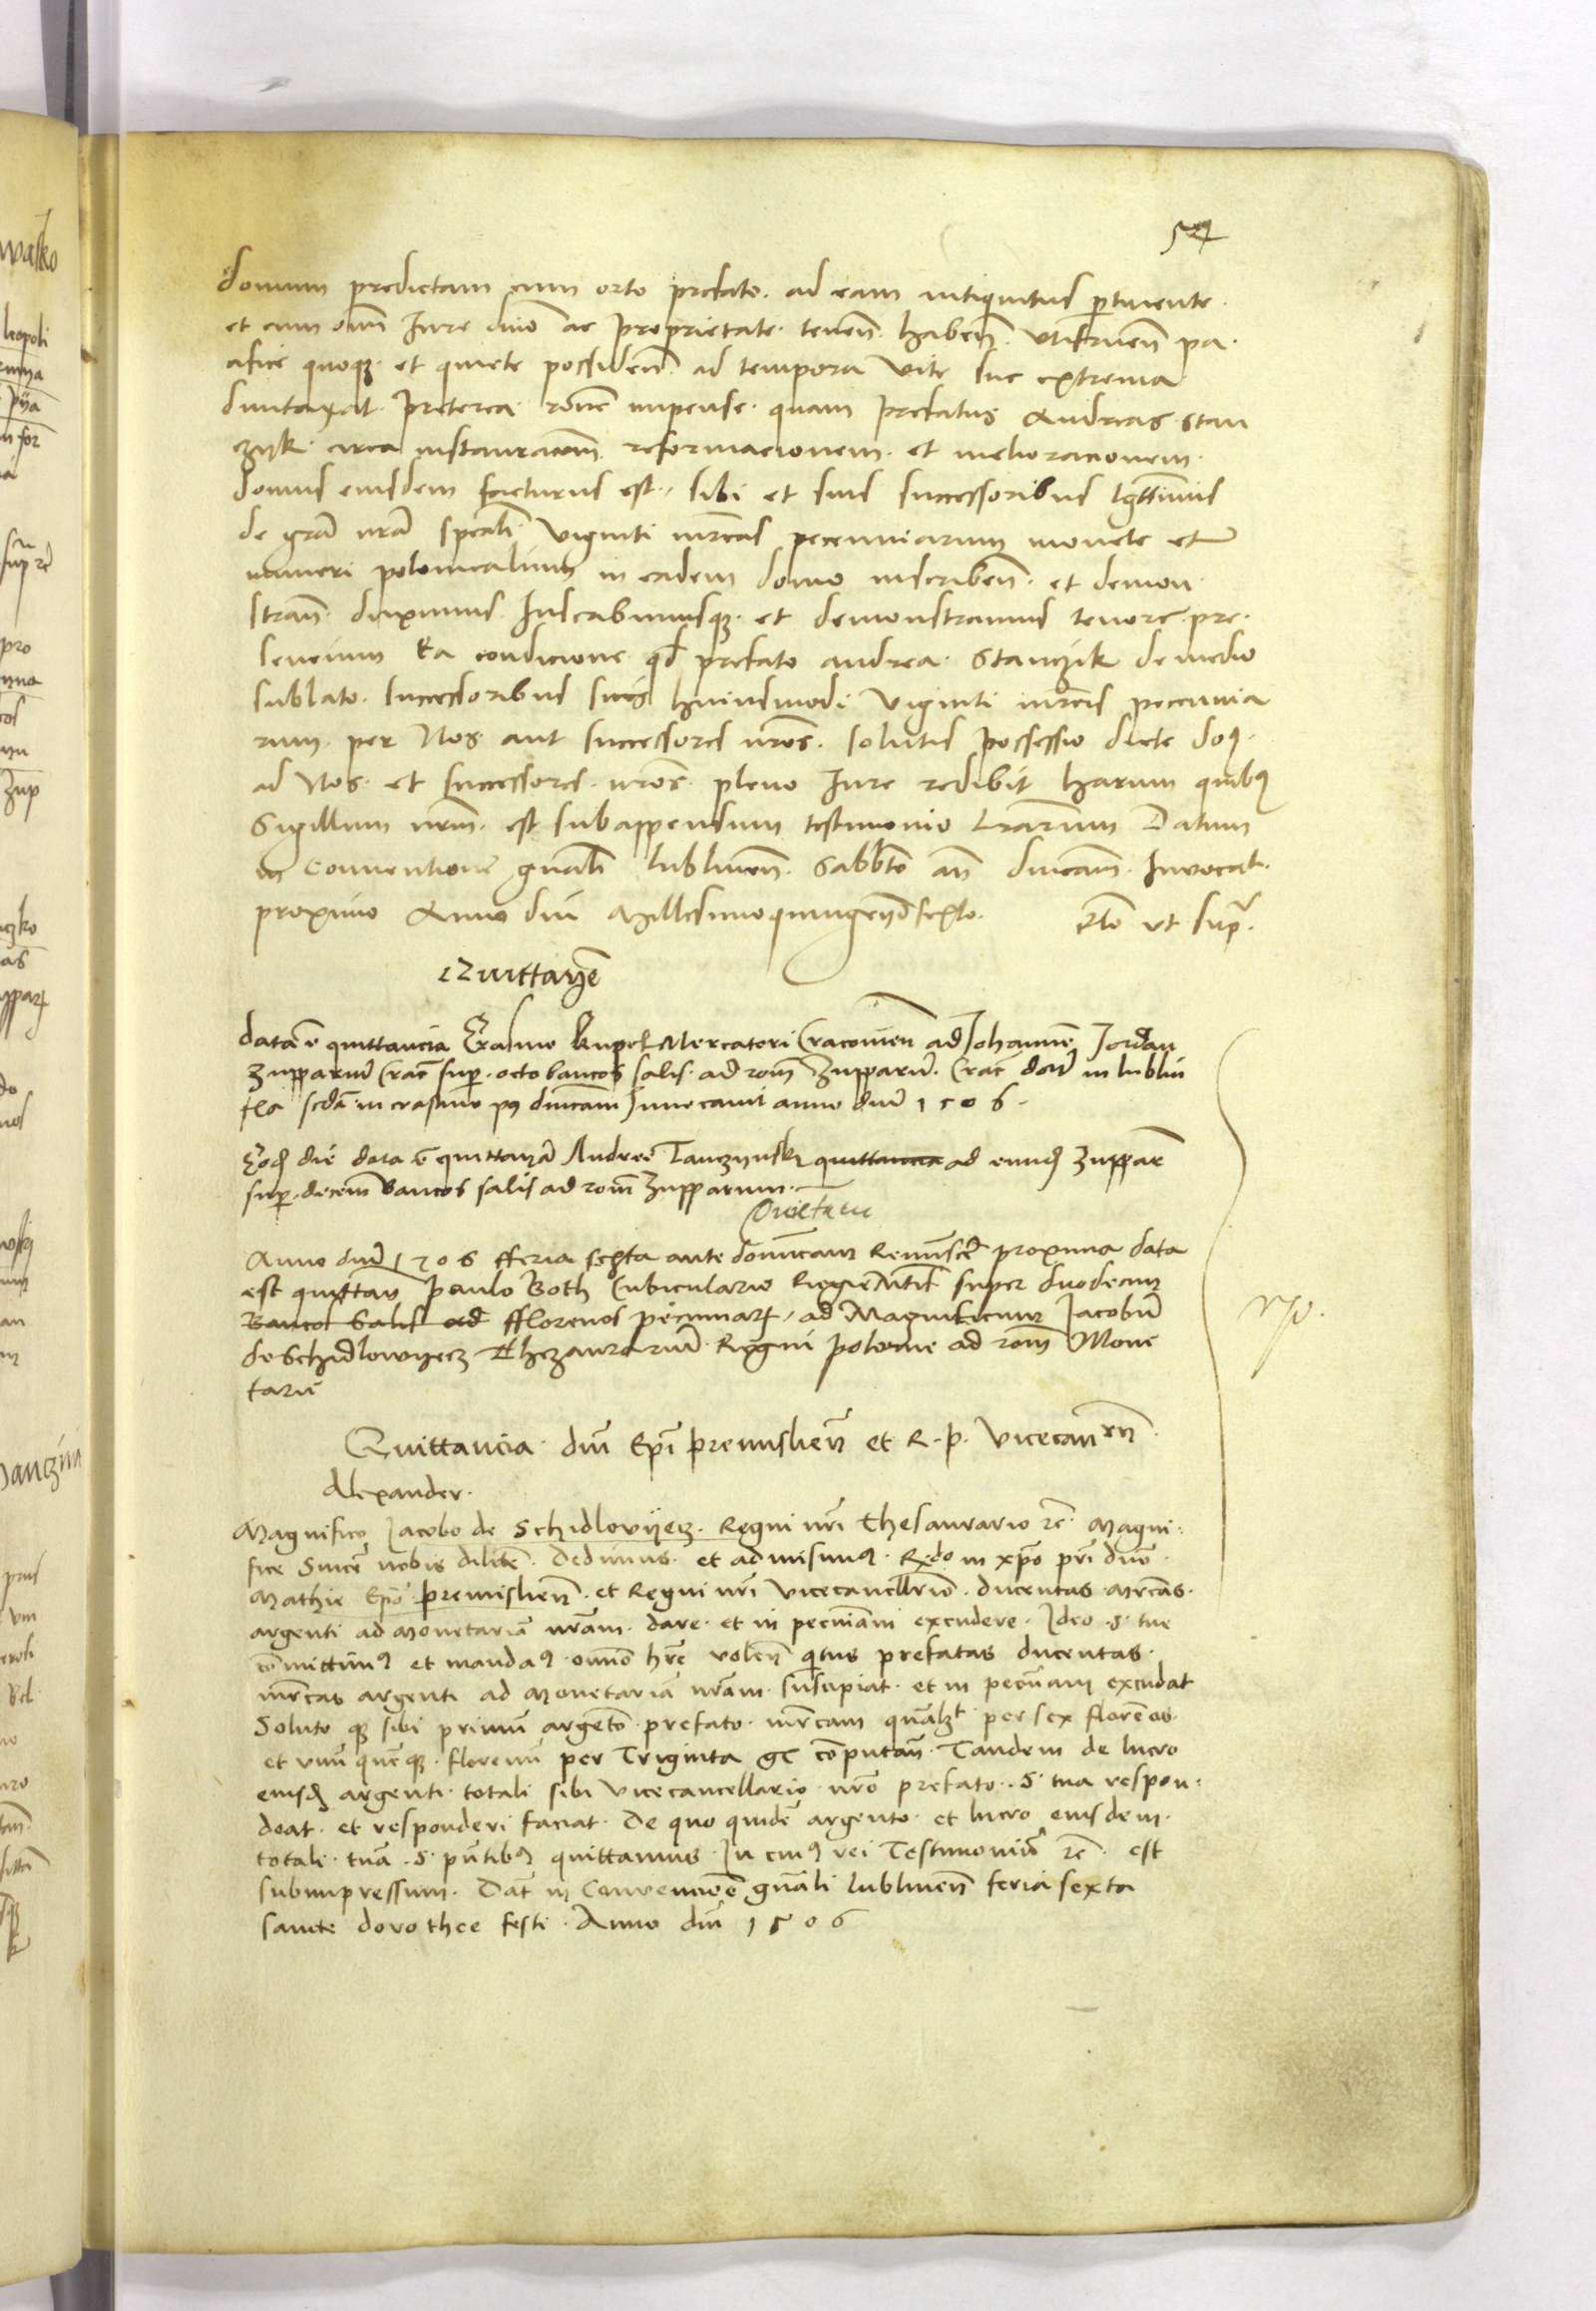 54
domum predictam cum orto prefato. ad eam antiquitus ptinente.
et cum omi Jure dnio ac Proprietate. tenen. haben. utifruen pa.
cifice quoqz. et quiete possiden. ad tempora vite sue extrema
duntaxat. Preterea ronem impense. quam Prefatus Andreas Stan
czyk. circa instauracom. reformacionem. et melioracionem.
domus eiusdem facturus est. sibi et suis successoribus lgttimis
de gra nra speali viginti mrcas pecuniarum monete et
numeri polonicalium in eadem domo inscriben. et demon
stran. duximus Inscribimusqz. et demonstramus tenore pre.
sencium Ea condicione qd prefato andrea. Stanczik de medio
sublato. successoribus suis huiusmodi viginti mrcis pecunia
rum. per Nos aut successores nros. solutis possessio dicte do9.
ad Nos. et successores. nros. pleno Jure redibit harum quib9
Sigillum nrm. est subappensum testimonio lrarum Datum
in Conventione gnali lublinen. Sabbto an dnicam. Invocat.
proximo Anno dni Millesimoquingen°sexto. Rlo ut supra.
Quittancie
data e quittancia Erasmo kupel Mercatori Cracovien ad Johannem Jordan
zupparium Crac sup. octo bancos salis. ad rom Zupparum. Crac dat in lublin
fla scda in crastino p9 dnicam Invocavit anno dni 1506.
Eod die data e quittancia Andree Tanczynski quittancia ad eund zuppar
sup. decem bancos salis ad rom zupparum.
Quietacio
Anno dni 1506 fferia sexta ante dominicam Reminiscere proxima data
est quittan Paulo Both Cubiculario Regie Mtis super duodecim
Bancos Salis ad fflorenos pecuniar, ad Magnificum Jacobum
de Schidlowyecz Thezaurarium Regni polonie ad rom Mone
tarum
Quittancia dni Epi premislien et R. p. vicecan
Alexander.
Magnifico Jacobo de Schidlovyecz. Regni nri Thesaurario re. Magni:
fice Sincere nobis dilcte. Dedimus. et admisim9. Rdo in xpo pri dno.
Mathie Epo premislien. et Regni nri vicecancellrio. ducentas mrcas.
argenti ad Monetaria nram. dare. et in pecuniam excudere. Ideo. S. tue
comittim9 et manda9. omno hre volen qtus prefatas ducentas.
mrcas argenti ad Monetaria nram. suscipiat. et in pecuniam excudat
Soluto qz sibi primum argeto prefato. mrcam qualzt per sex florenos.
et vnu queqz. florenu per Triginta gr computan. Tandem de lucro
eiusd argenti totali sibi vicecancellario nro prefato. S. tua respon:
deat. et responderi faciat. De quo quide argento. et lucro eiusdem.
totali. tua. S. pntib9 quittamus. In cui9 rei Testimoniu re. est
subimpressum. Dat in Convencione gnali lublinen feria sexta
sancte dorothee festi. Anno dni 1506